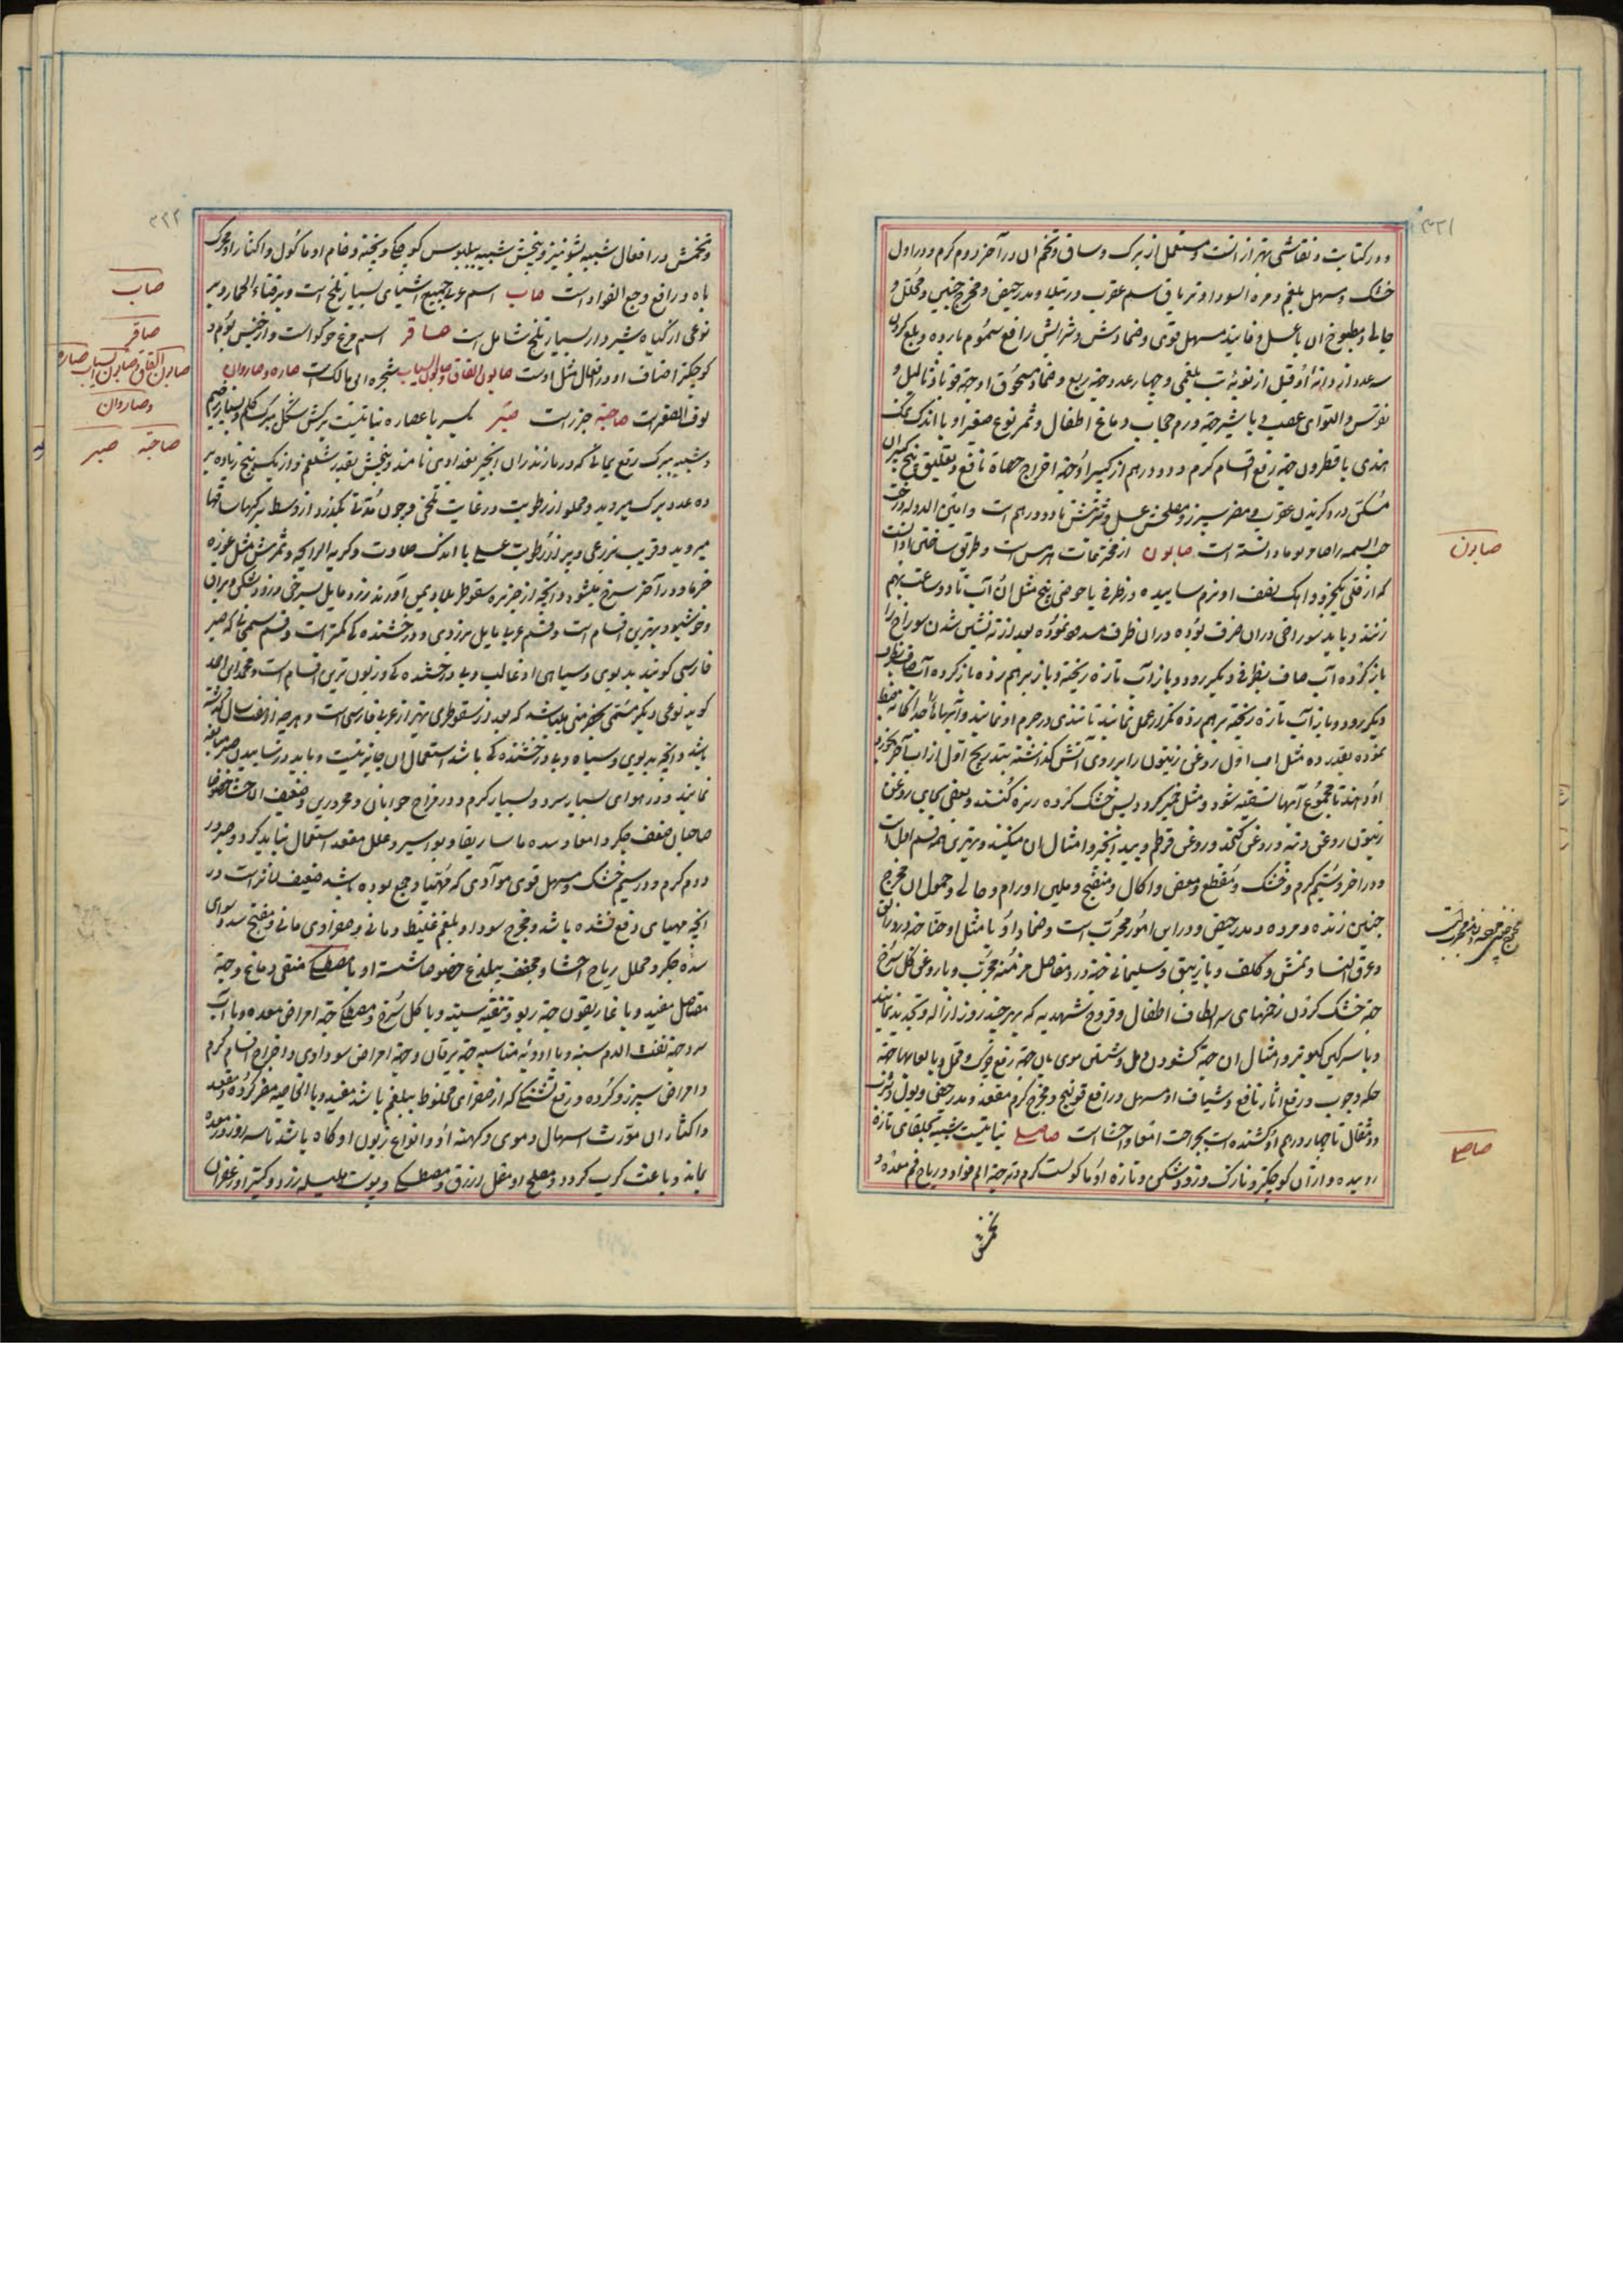 ۳۲۱
و در کتابت و نقاشی بهتر از انست و مستعمل از برک و ساق و تخم ان در آخر دوم کرم و در اول
خشک و مسهل بلغم و مره السودا و تریاق سم عقرب و رتیلا و مدر حیض و مخرج جنین و محلل و
جالی و مطبوخ ان با عسل و فانید مسهل قوی و ضمادش و شرابش رافع سموم بارده و بلع کردن
سه عدد از دانهٔ او قبل از نوبهٔ تب بلغمی و چهار عدد جهة ربع و ضماد مسحوق او جهة قوبا و ثالیل و
نقرس و التوای عصب و با شیر جهة ورم حجاب دماغ اطفال و ثمر نوع صغیر او با اندک نمک
هندی یا قطرون جهة رفع اقسام کرم و دو درهم از کبیر او جهة اخراج حصاة نافع و تعلیق بیخ کبیر ان
مسکن درد کزیدن عقرب و مضر سپرز و مصلحش عسل و شربتش تا دو درهم است و امین الدوله درخت
حب السمنه را صامریوما دانسته است صابون از مخترعات هرمس است و طریق ساختن او انست
که از قلی یکجزو و اهک نصف او نرم ساییده در ظرفی یا حوضی پنج مثل ان آب تا دو ساعت بهم
زنند و باید سوراخی در ان ظرف بوده در ان ظرف مسدود نموده بعد از ته نشین شدن سوراخ را
باز کرده آب صاف بظرفی دیکر رود و باز آب تازه ریخته و باز برهم زده باز کرده آب صاف بظرف
دیکر رود و باز آب تازه ریخته برهم زده تکرار عمل نمایند تا تندی در جرم او نماند و آبها را جداکانه ضبط
نموده بقدر ده مثل اب اول روغن زیتون را بر روی آتش کذاشته بتدریج اول از اب آخر بخورد
او دهند تا مجموع آبها تسقیه شود و مثل خمیر کردد پس خشک کرده ریزه کنند و بعضی بجای روغن
زیتون روغن دنبه و روغن کنجد و روغن قرطم و بید انجیر و امثال ان میکنند و بهترین همه قسم اول است
و در اخر دوم کرم و خشک و مقطع و معفن و اکال و منضج و ملین اورام و جالی و حمول ان مخرج
جنین زنده و مرده و مدر حیض و در این امور مجرب است و ضماد او با مثل او حنا جهة درد زانو
و عرق النسا و نمش و کلف و با زیبق و سلیمانی جهة درد مفاصل مزمنه مجرب و با روغن کل سرخ
جهة خشک کردن زخمهای سر اطفال و قروح شهدیه که بهر چند روز ازاله و تجدید نمایند
و با سرکین کبوتر و امثال ان جهة کشودن دمل و شستن موی بان جهة رفع چرک و قمل و با لعابها جهة
حکه و جرب و رفع اثار نافع و شیاف او مسهل و رافع قولنج و مخرج کرم مقعد و مدر حیض و بول و شرب
دو مثقال تا چهار درهم او کشنده است بجراحت امعا و احشا است صاصلی نباتیست شبیه بحلبهای تازه
روییده و از ان کوچکتر و نازک و زودشکن و تازه او ماکولست کرم و تر جهة الم فواد و ریاح فم معده و
تخمش
صابون
صاصلی
۳۲۲
و تخمش در افعال شبیه بشونیز و بیخش شبیه ببلبوس کوچکی و پخته و خام او ماکول و اکثار او محرک
باه و رافع وجع الفواد است صاب اسم عربی جمیع اشیای بسیار تلخ است و بر قثاء الحمار و بر
نوعی از کیاه شیردار بسیار تلخ شامل است صاقر اسم مرغ خوکوا است و از جنس بوم و
کوچکتر اصناف او و در افعال مثل اوست صابون القاق و صابون السیاب شجره ابی مالک است صاره و صاروان
لوف الصغیر است صاحبة جزر است صبر بکسر با عصاره نباتیست برکش بشکل برک کلم و بسیار ضخیم
و شبیه ببرک رقع یمانی که در مازندران انجیر بغدادی نامند و بیخش بقدر شلغم و از یک بیخ زیاده بر
ده عدد برک میروید و مملو از رطوبت در غایت تلخی و چون مدتی بکذرد از وسط برکهای ساقها
میروید و قریب بزرعی و پر از رطوبت عسلی با اندک حلاوت و کریه الرایحه و ثمرش مثل غوره
خرما و در آخر سرخ میشود و انچه از جزیره سقوطر بلاد یمن آورند زرد مایل بسرخی و زودشکن و براق
و خوشبو و بهترین اقسام است و قسم عربی مایل بزردی و درخشنده کی کمتر است و قسم سمنجانی که صبر
فارسی کویند بدبوی و سیاهی او غالب و بی درخشنده کی و زبون ترین اقسام است و محمد ابن احمد
کوید نوعی دیکر مسمی بحضرمی میباشد که بعد از سقوطری بهتر از عربی فارسی است و هر چه زیاده از سال کذشته
باشد و انچه بدبوی و سیاه و بی درخشنده کی باشد استعمال ان جایز نیست و باید در ساییدن صبر مبالغه
نمایند و در هوای بسیار سرد و بسیار کرم و در مزاج جوانان و محرورین و ضعیف الاحشا خصوصا
صاحبان ضعف جکر و امعا و سده ماساریقا و بواسیر و علل مقعد استعمال نباید کرد و صبر در
دوم کرم و در سیم خشک و مسهل قوی موادی که مهیا و جمع بوده باشد ضعیف تاثیر است در
انچه مهیای دفع نشده باشد و مخرج سودا و بلغم غلیظ دماغی و صفرای مراری و مفتح سدد سوای
سده جکر و محلل ریاح احشا و مجفف بیلذع خصوصا شسته او با مصطکی منقی دماغ و جهة
مفاصل مفید و با غاریقون جهة ربو و تنقیه سینه و با کل سرخ و مصطکی جهة امراض معده و با آب
سرد جهة نفث الدم سینه و با ادویه مناسبه جهة یرقان و جهة امراض سوداوی و اخراج اقسام کرم
و امراض سپرز و کرده و رفع تشنکی که از صفرای مخلوط ببلغم باشد مفید و بالخاصیه مضر کرده و مقعد
و اکثار ان مورث اسهال دموی و کهنه او و انواع زبون او کاه باشد تا سه روز در معده
بماند و باعث کرب کردد و مصلح او مقل ازرق و مصطکی و پوست هلیله زرد و کتیرا و زعفران
صاب
صاقر
صابون القاق صابون السیاب صاره
و صاروان
صاحبة صبر